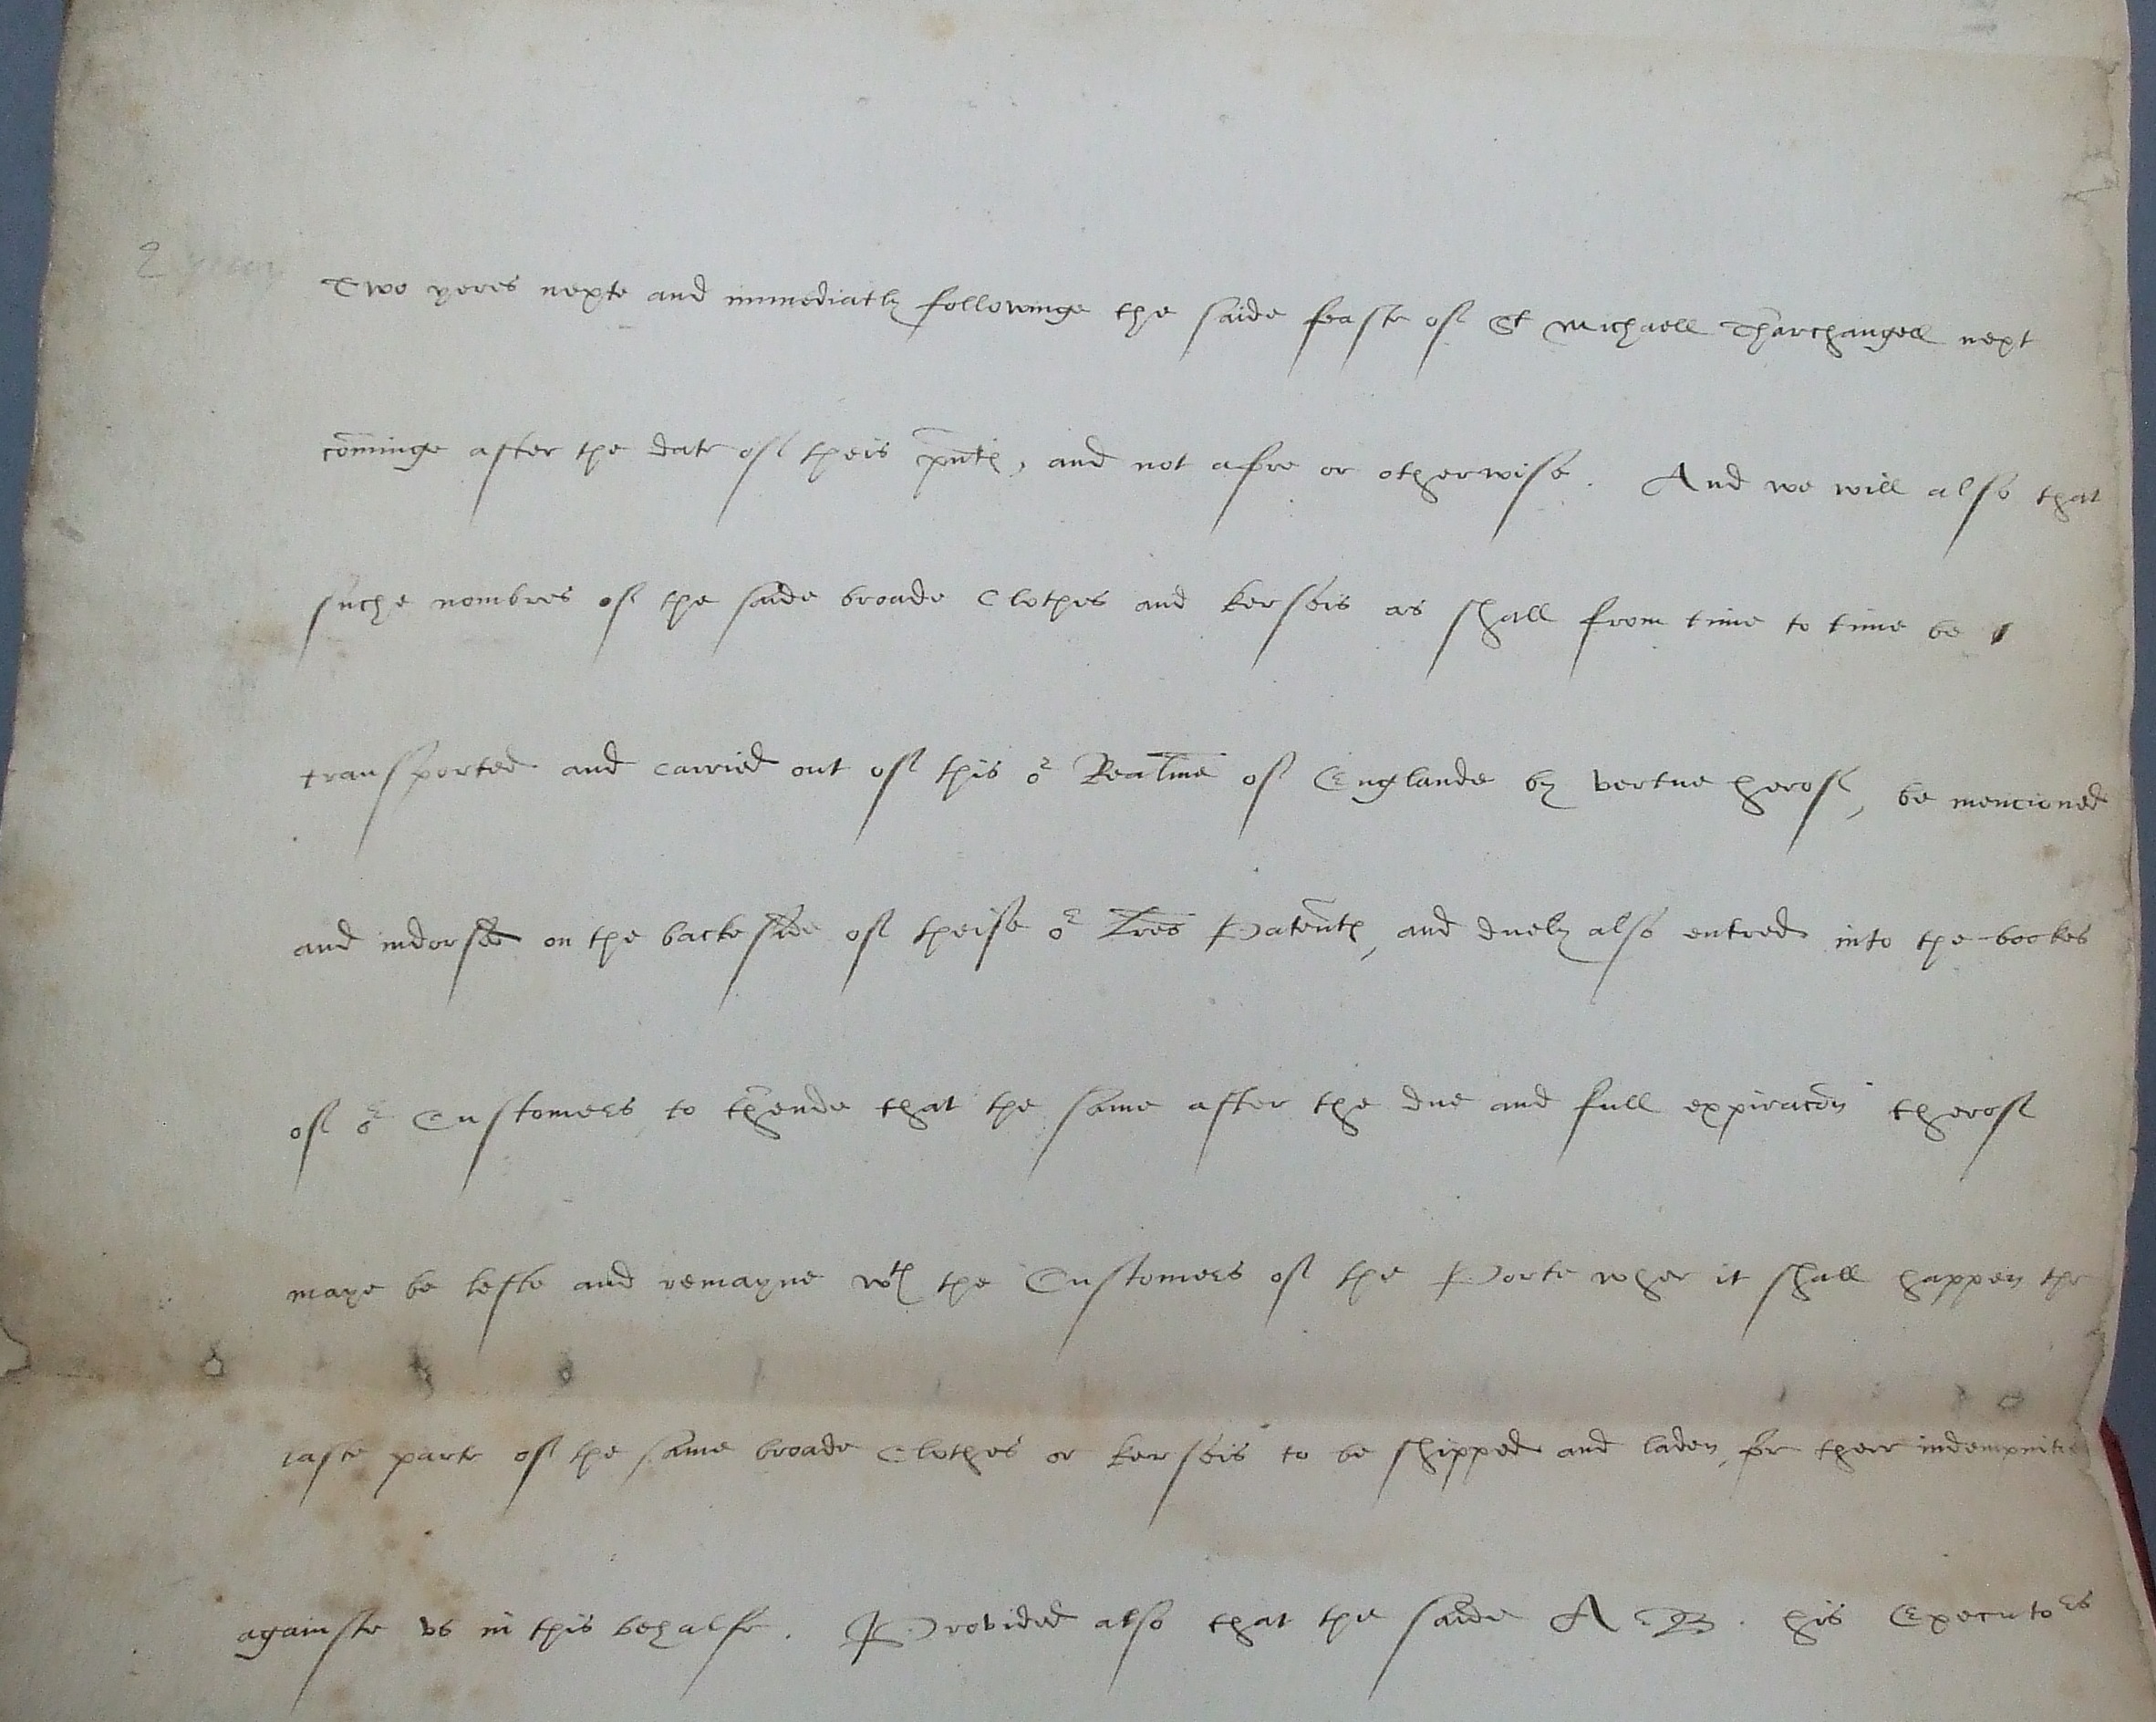 2 yeres
Two yeres nexte and immediatly followinge the saide feaste of St Michaell Tharchangell next
cominge after the date of theis pntes, and not afore or otherwise. And we will also that
suche nombres of the saide broade Clothes and kerseis as shall from time to time be
transported and carried out of this or Realme of Englande by vertue herof, be mencioned
and indorsed on the backeside of theise or Lres Patentes, and duely also entred into the bookes
of or Customers, to thende that the same after the due and full expiracon therof
maye be lefte and remayne wth the Customers of the Porte wher it shall happen the
laste parte of the same broade Clothes or kerseis to be shipped and laden, for their indempnitie
againste vs in this behalfe. Provided also that the saide A B. his Executors